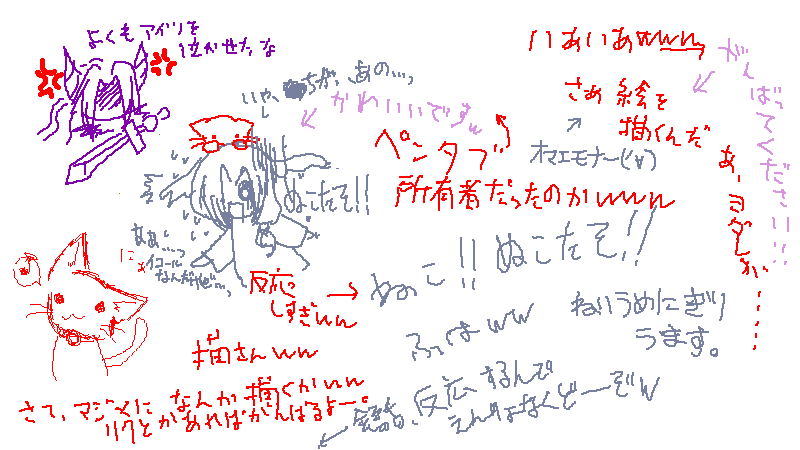 よくもアイツを
泣かせたな
いや、ちがっ、あの…っ
かわいいですw
いあいあwwww
さぁ 絵を
描くんだ
がんばってください!!
オマエモナー(´∀`)
ペンタブ
所有者だったのかwwww
あ、ヨダレが……
ぬこたそ!!
ああ……っ
イコール
なんだけど…っ
にゃ
反応
しすぎww
→ ぬこ!! ぬこたそ!!
描さんww
ふくはww
ねいうめにぎり
うます。
さて、マジメになんか描くかww
リクとかあればがんばるよー。
反応するんで
えんりょなくどーぞw